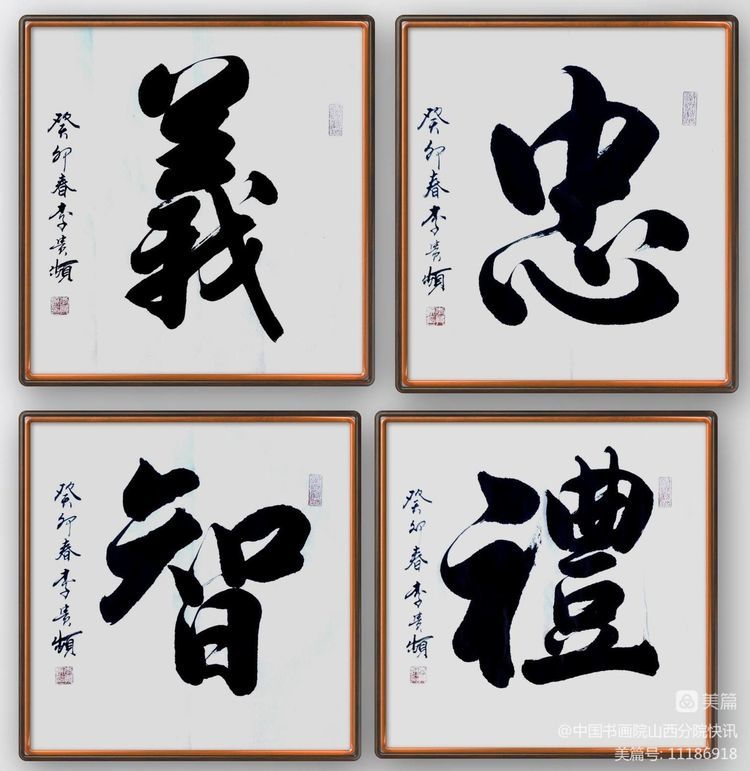 義
癸卯春李贵頻
忠
癸卯春李贵頻
智
癸卯春李贵頻
禮
癸卯春李贵頻
美篇
@中国书画院山西分院快讯
美篇号: 11186918